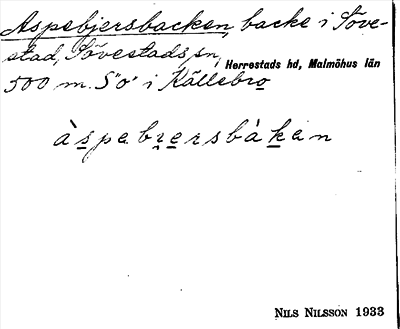 Aspebjersbacken, backe i Söve-
stad, Sövestads sn, Herrestads hd, Malmöhus län
500 m. S"o" i Källebro
àspebrersbàken
NILS NILSSON 1933